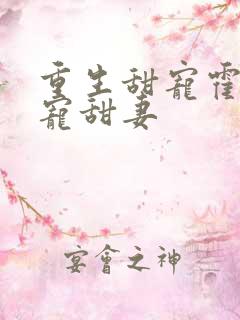 重生甜寵霍
寵甜妻
宴會之神